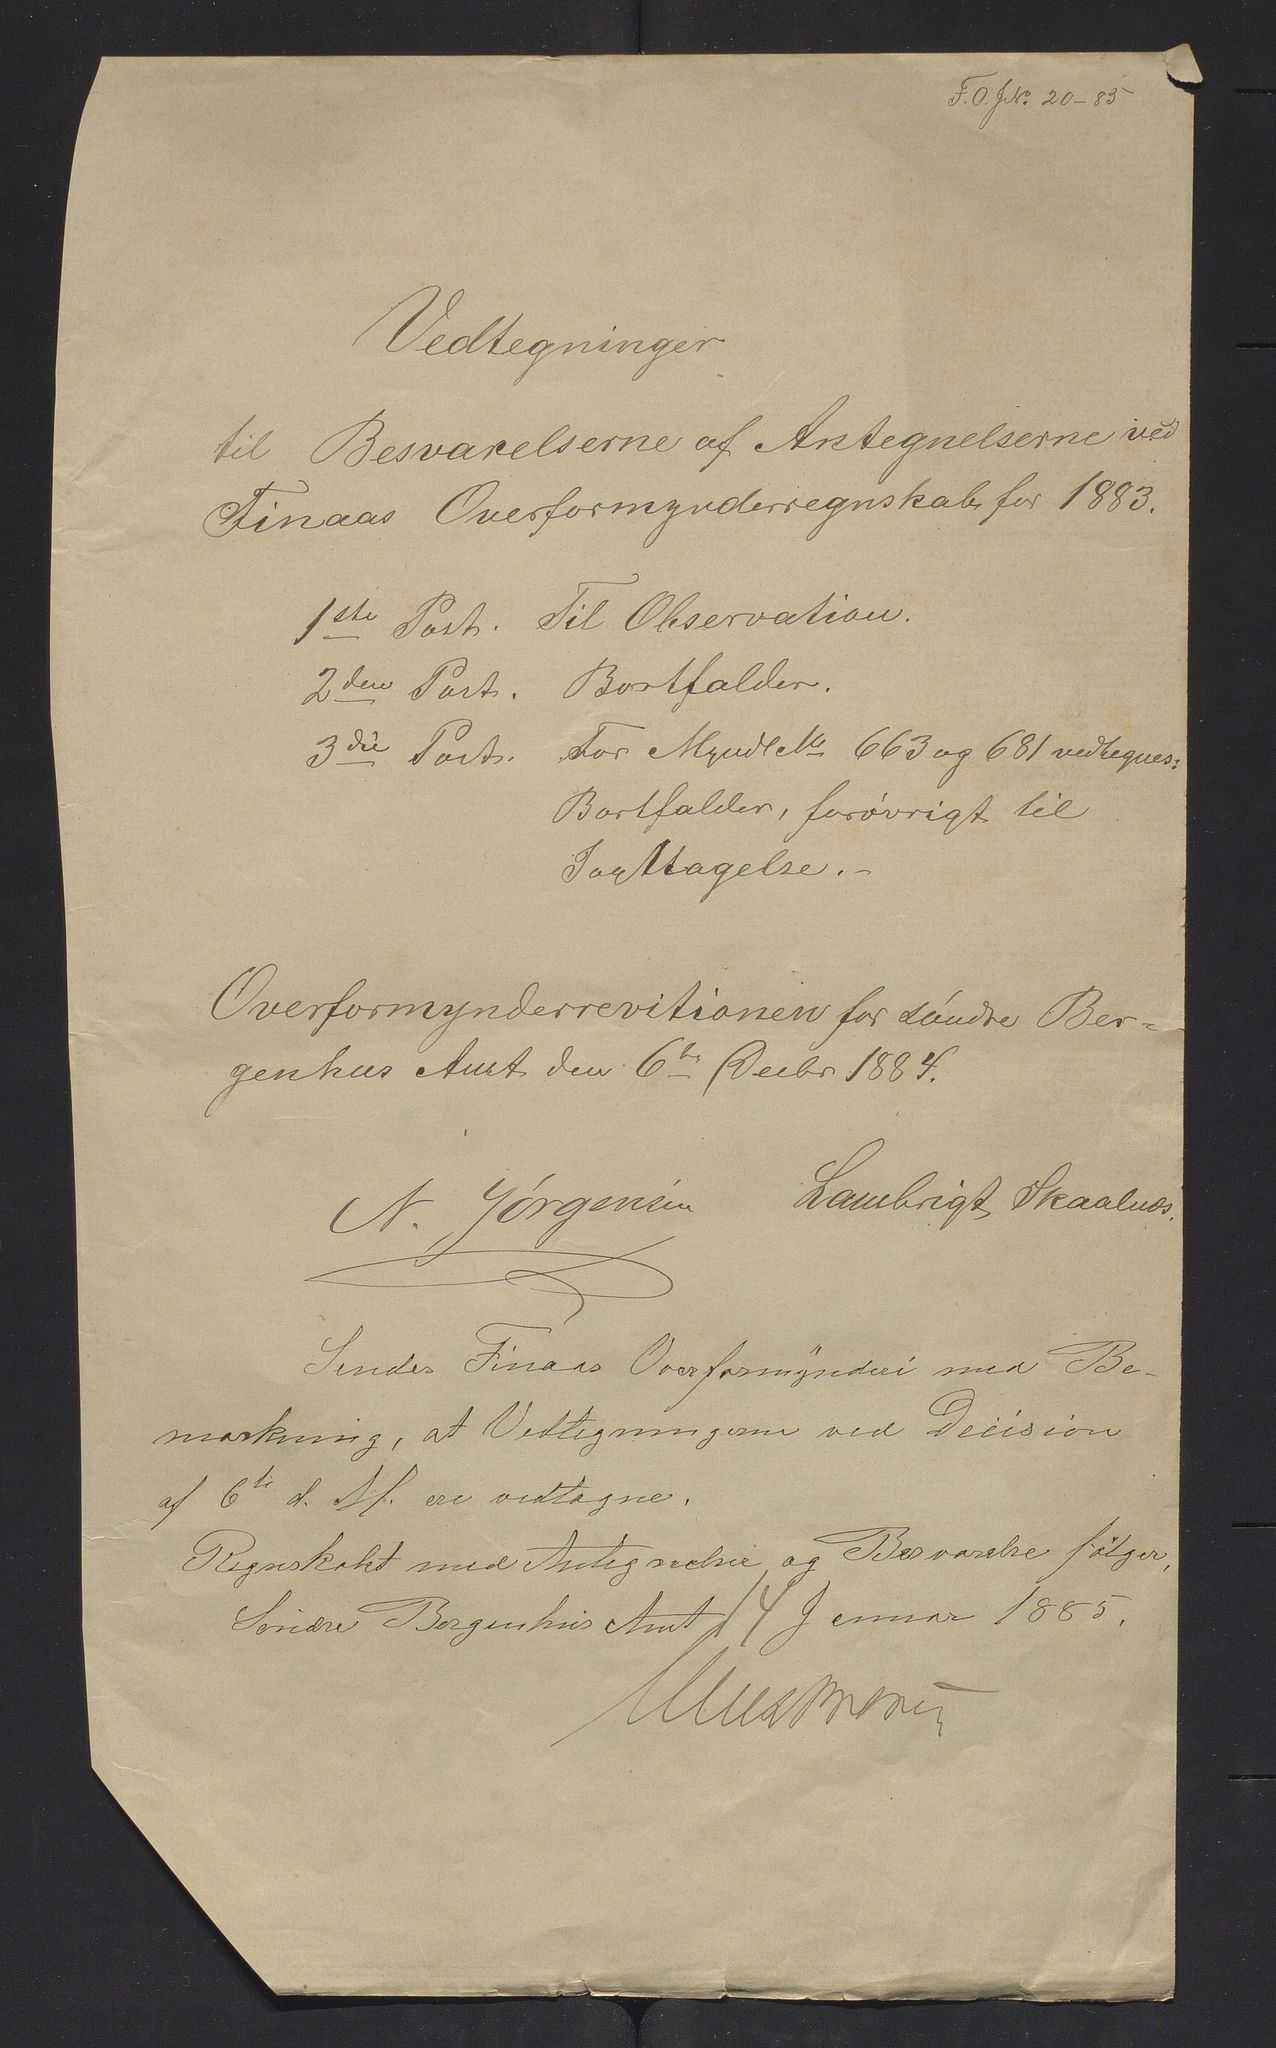 F.O.J.No. 20-85
Vedtegninger
til Besvarelserne af Antegnelserne ved
Finaas Overformynderregnskab for 1883.
1ste Post. Til Observation.
2den Post. Bortfalder.
3die Post. For Myndl No 663 og 681 vedtegnes:
Bortfalder, forøvrigt til
Iagttagelse.-
Overformynderrevitionen for søndre Ber-
genhus Amt den 6te Decbr 1884.
N. Jörgensen Lambrigt Skaalnæs.
Sendes Finaas Overformynderi med Be-
mærkning, at Vedtegningerne ved Decision
af 6te d. M. ere vedtagne.
Regnskabet med Antegnelser og Besvarelse følger.
Søndre Bergenhus Amt 14 Januar 1885.